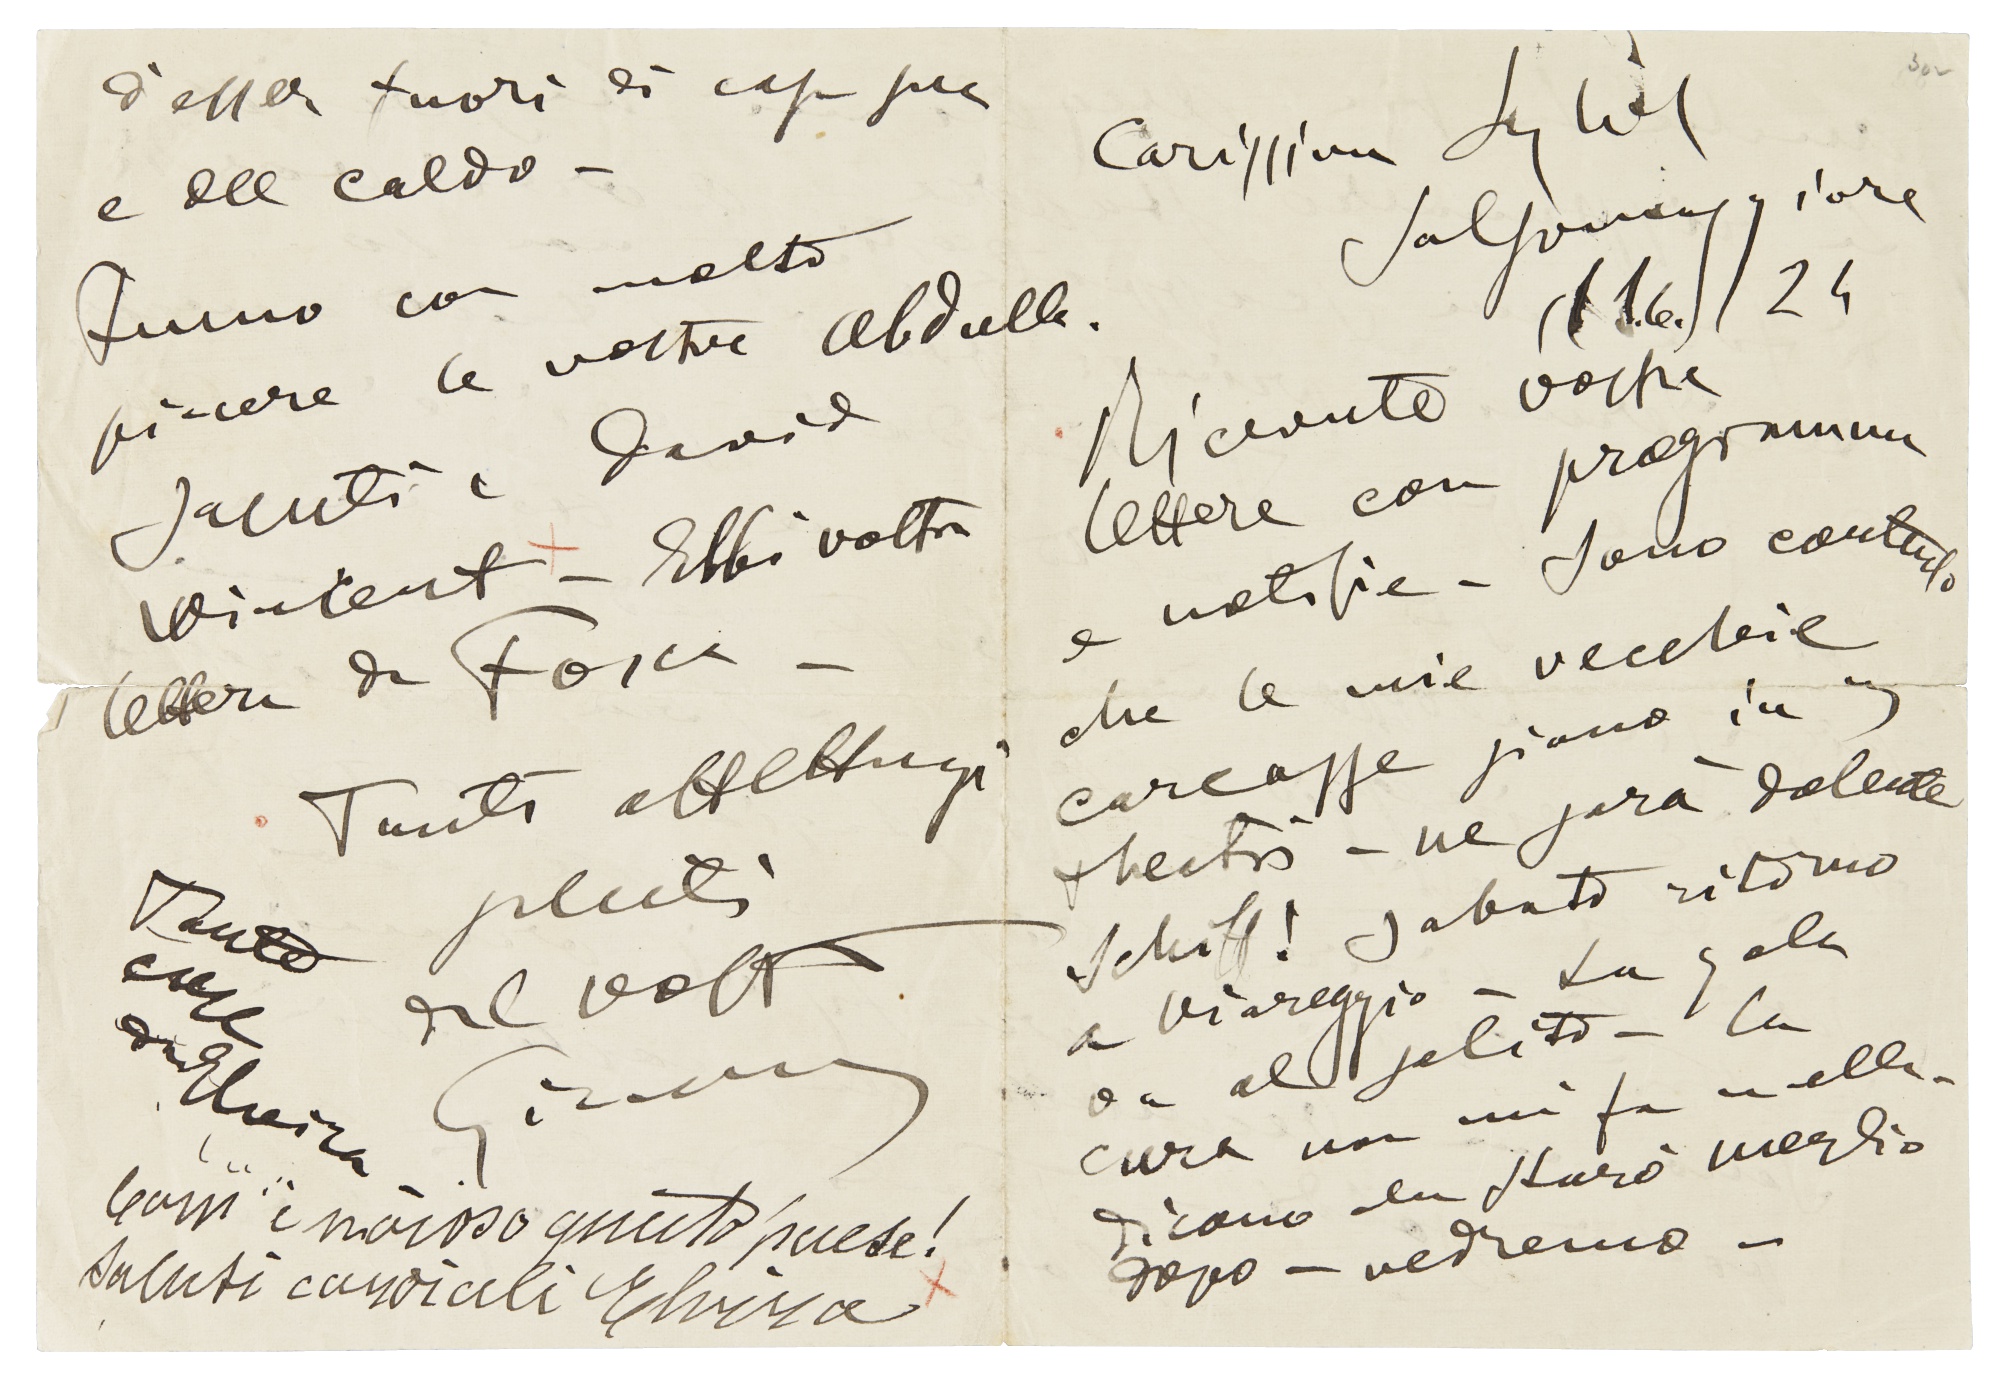 Carissima Sybil
Salsomaggiore
11.6. 24
Ricevute vostre
lettere con programma
e notizie - Sono contento
che le mie vecchie
carcasse siano in
theatri - ne sarà dolente
Schiff! Sabato ritorno
a Viareggio - La gola
va al solito - la
cura non mi fa nulla -
dicono che starò meglio
dopo - vedremo -
d'esser fuori di casa
e del caldo -
Fumo con molto
piacere le vostre Abdulla.
Saluti a David
Vincent - Ebbi vostra
lettera da Fosca -
Tanti affettuosi
saluti
del vostr
Giacomo
Tante
cose
da Elvira
Com' è noioso questo paese!
Saluti cordiali Elvira